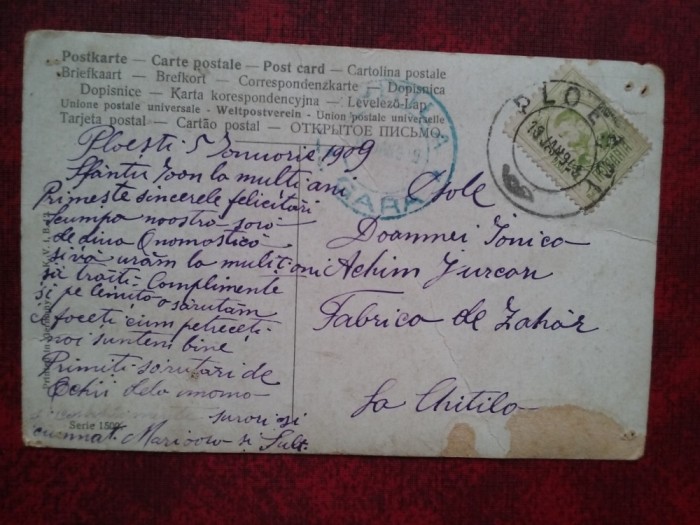 Postkarte — Carte postale — Post card — Cartolina postale
Briefkaart — Brefkort — Correspondenzkarte — Dopisnica
Dopisnice — Karta korespondencyjna — Levelező-Lap
Unione postale universale - Weltpostverein - Union postale universelle
Tarjeta postal — Cartão postal — ОТКРЫТОЕ ПИСЬМО.
Ploești 5 Ianuarie 1909
Sfântu Ioan la multi ani
Primește sincerele felicitări
scumpa noastra soro
de ziua Onomastică
și vă urăm la multi ani
să traiti. Complimente
și pe Lenuța o sărutăm
Ce faceti cum petreceți
noi suntem bine
Primiti sărutari de
la mama
surori și
cumnat. Marioara și
Serie 1509
GARA
PLOE
Doamnei Ionica
Achim Jurcan
Fabrica de Zahăr
La Chitila